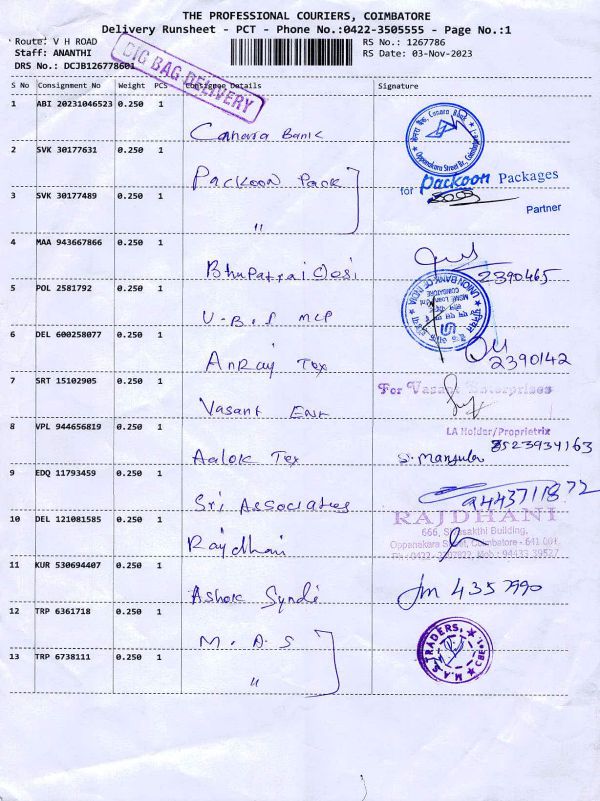 THE PROFESSIONAL COURIERS, COIMBATORE
Delivery Runsheet - PCT - Phone No.:0422-3505555 - Page No.:1
Route: V H ROAD
RS No.: 1267786
Staff: ANANTHI
RS Date: 03-Nov-2023
DRS No.: DCJB126778601
BIG BAG DELIVERY
S No Consignment No Weight PCS Consignee Details Signature
1 ABI 20231046523 0.250 1
Canara Bank
Canara Bank
Oppanakara Street Br., Coimbatore
2 SVK 30177631 0.250 1
Packoon Pack
for Packoon Packages
Partner
3 SVK 30177489 0.250 1
"
4 MAA 943667866 0.250 1
Bhupatrai Desi
2390465
5 POL 2581792 0.250 1
U.B.I MCP
UNION BANK OF INDIA
COIMBATORE
6 DEL 600258077 0.250 1
Anray Tex
2390142
7 SRT 15102905 0.250 1
Vasant Ent
For Vasant Enterprises
LA Holder/Proprietrix
8 VPL 944656819 0.250 1
Aalok Tex
S. Manjula
8523934163
9 EDQ 11793459 0.250 1
Sri Associates
9443711872
10 DEL 121081585 0.250 1
Rajdhani
RAJDHANI
666, Sivasakthi Building,
Oppanakara Street, Coimbatore - 641 001.
11 KUR 530694407 0.250 1
Ashok Syndi
4357990
12 TRP 6361718 0.250 1
M.A.S
M.A.S. TRADERS, CBE-1
13 TRP 6738111 0.250 1
"